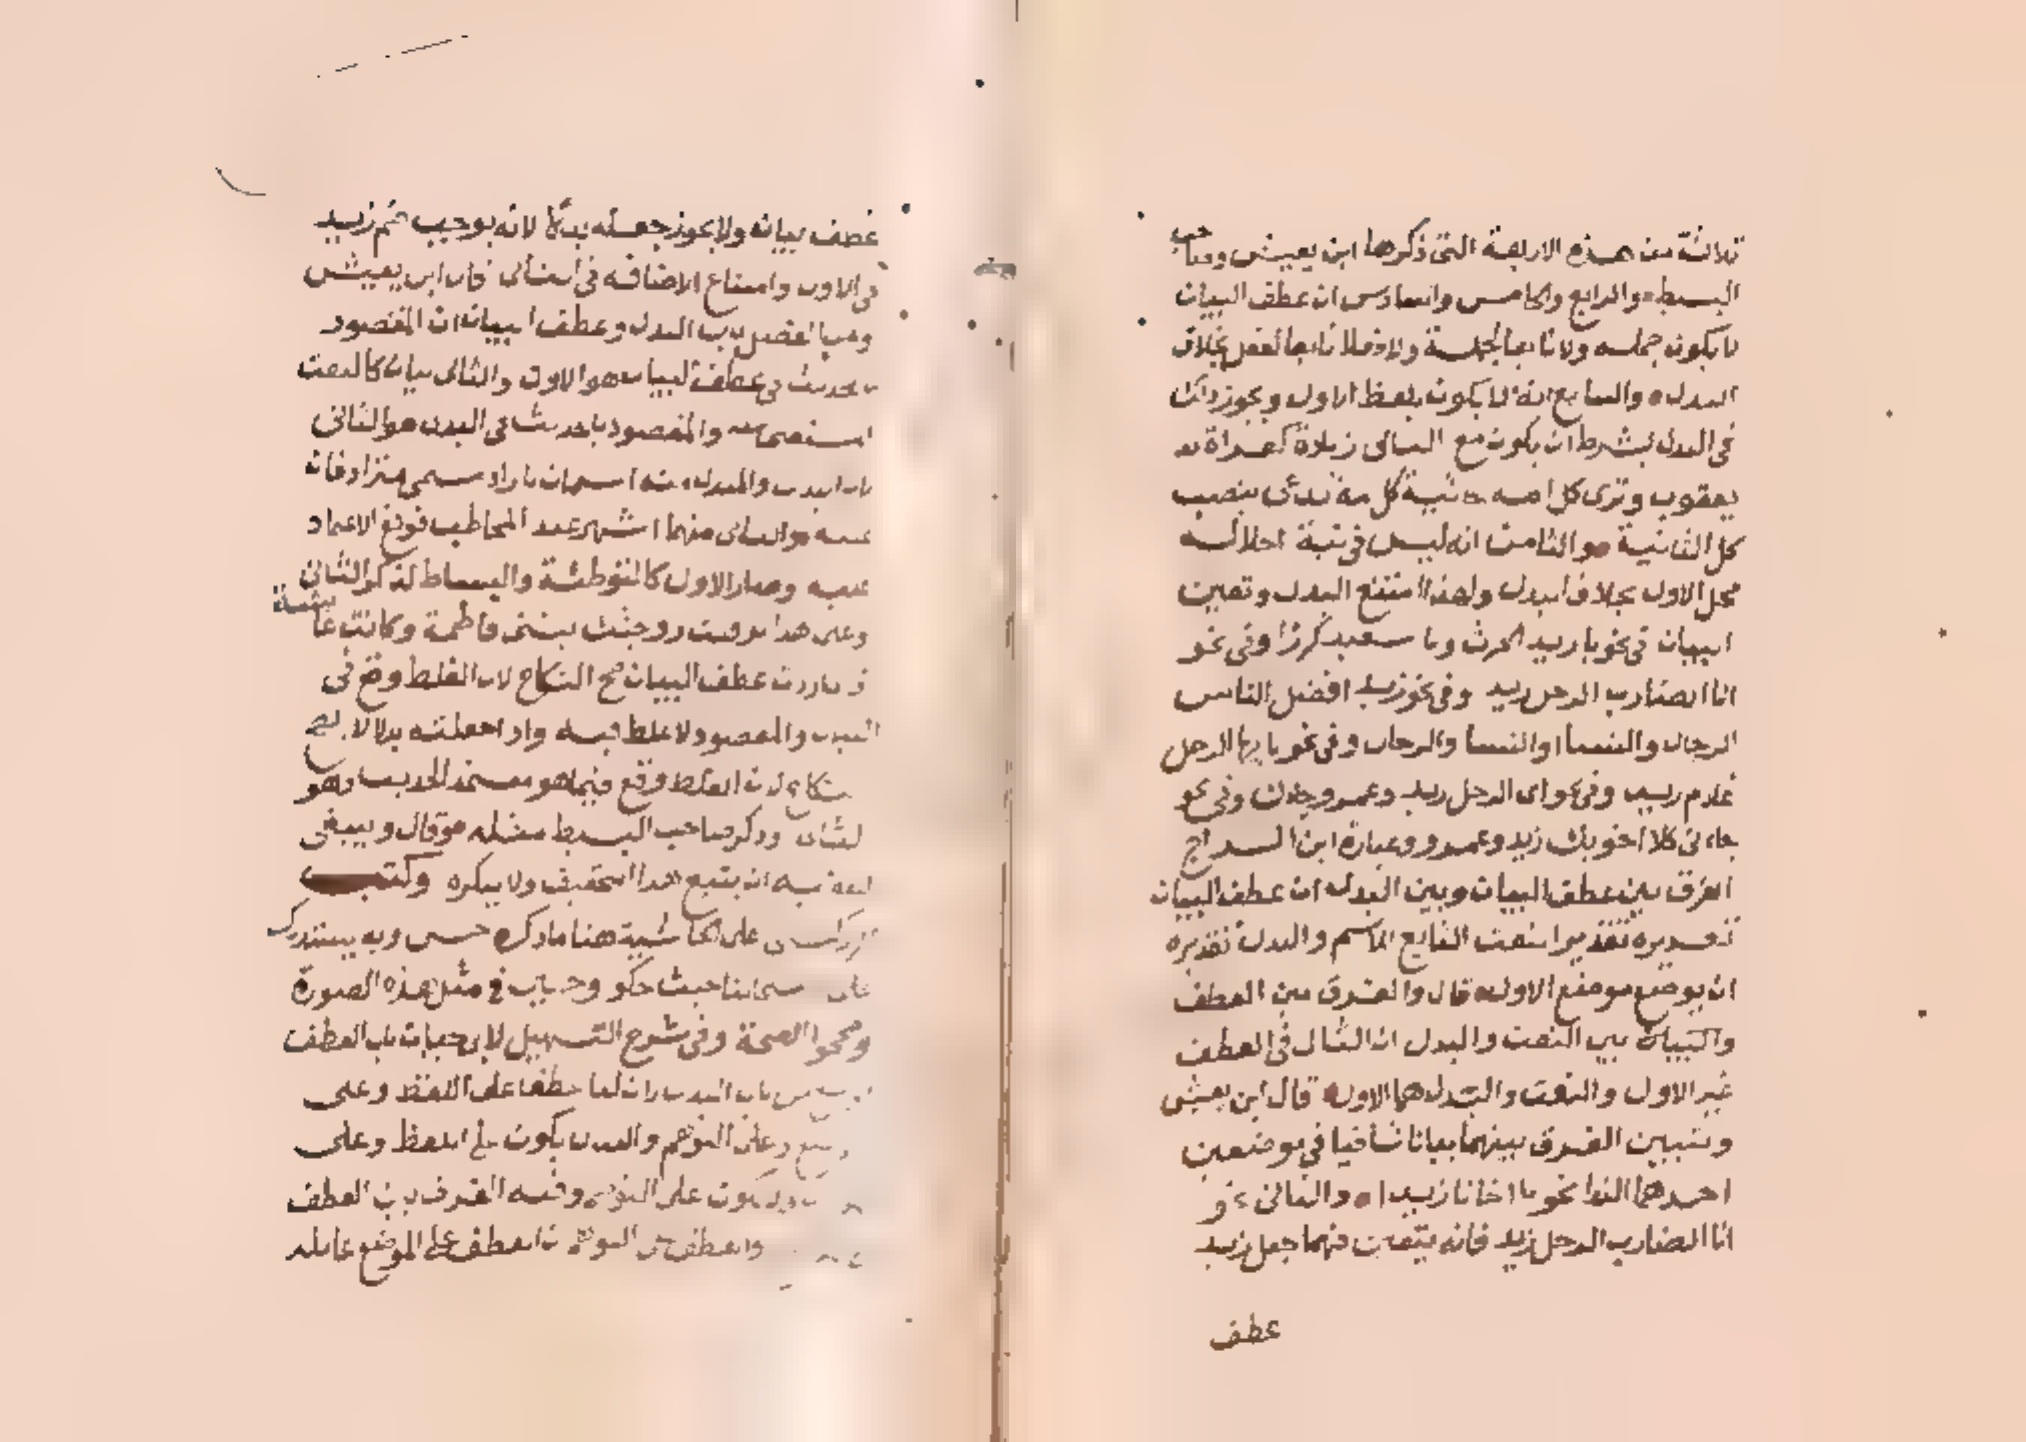 ثلاثة من هذه الاربعة التى ذكرها ابن يعيش وصاحب
البسيط والرابع والخامس والسادس ان عطف البيان
لا يكون جملة ولا تابعا لجملة ولا فعلا تابعا لفعل بخلاف
البدل والسابع انه لا يكون بلفظ الاول ويجوز ذلك
فى البدل بشرط ان يكون مع الثانى زيادة كقراة
يعقوب وترى كل امة جاثية كل امة تدعى بنصب
كل الثانية والثامن انه ليس فى نية احلاله
محل الاول بخلاف البدل ولهذا امتنع البدل وتعين
البيان فى نحو يا زيد الحرث ويا سعيد كرز وفى نحو
انا الضارب الرجل زيد وفى نحو زيد افضل الناس
الرجال والنسا او النسا والرجال وفى نحو يا ايها الرجل
غلام زيد وفى نحو اى الرجل زيد وعمرو جاك وفى نحو
جاءنى كلا اخويك زيد وعمرو وعبارة ابن السراج
الفرق بين عطف البيان وبين البدل ان عطف البيان
تقديره تقدير النعت التابع للاسم والبدل تقديره
ان يوضع موضع الاول قال والفرق بين العطف
والبيان بين النعت والبدل ان الثانى فى العطف
غير الاول والنعت والبدل هما الاول قال ابن يعيش
وتتبين الفرق بينهما بيانا شافيا فى موضعين
احدهما الندا نحو يا اخانا زيدا والثانى نحو
انا الضارب الرجل زيد فانه يتعين فيهما جعل زيد
عطف
عطف بيان ولا يجوز جعله بدلا لانه يوجب ضم زيد
فى الاول وامتناع الاضافه فى الثانى قال ابن يعيش
ومما يفصل بين البدل وعطف البيان ان المقصود
بالحديث فى عطف البيان هو الاول والثانى بيان كالنعت
المستغنى عنه والمقصود بالحديث فى البدل هو الثانى
لان البدل والمبدل منه اسمان بازاء مسمى مترادفان
عليه والثانى منهما اشهر عند المخاطب فوقع الاعتماد
عليه وصار الاول كالتوطئة والبساط لذكر الثانى
وعلى هذا لو قلت زوجتك بنتى فاطمة وكانت عائشة
فان اردت عطف البيان صح النكاح لان الغلط وقع فى
البيان والمقصود لا غلط فيه واذا جعلته بدلا لا يصح
النكاح لان الغلط وقع فيما هو معتمد الحديث وهو
الثانى وذكر صاحب البسيط مثله وقال وينبغى
للفقيه ان يتبع هذا التحقيق ولا ينكره وكتب
الزركشى على الحاشية هنا ما ذكره حسن وبه يستدرك
على اصحابنا حيث حكوا وجهين فى مثل هذه الصورة
وصححوا الصحة وفى شرح التسهيل لابى حيان باب العطف
اوسع من باب البدل لان لنا عطفا على اللفظ وعلى
الموضع وعلى التوهم والبدل يكون على اللفظ وعلى
الموضع ولا يكون على التوهم وفيه الفرق بين العطف
على الموضع والعطف على التوهم ان العطف على الموضع عامله